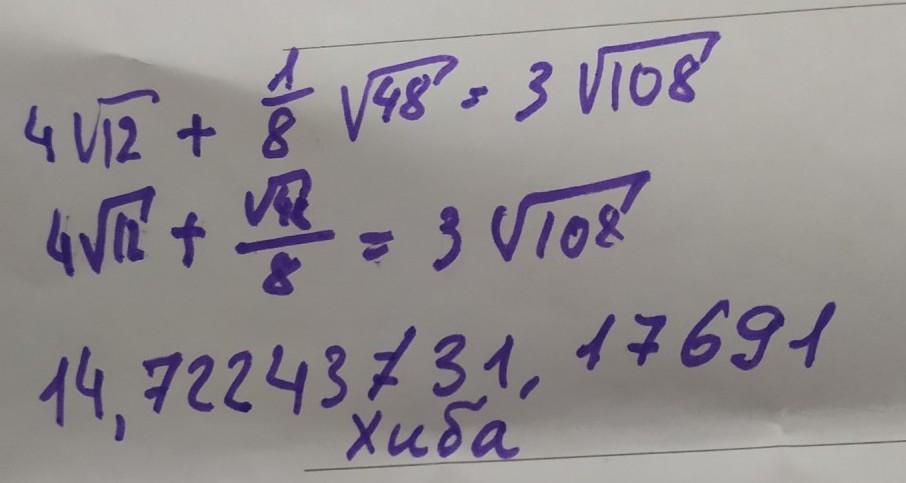 4√12 + 1/8 √48 = 3 √108
4√12 + √48/8 = 3 √108
14,72243 ≠ 31,17691
хиба